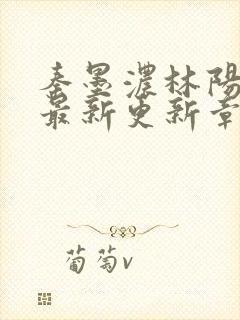 秦墨濃林陽
最新更新章
葡萄v